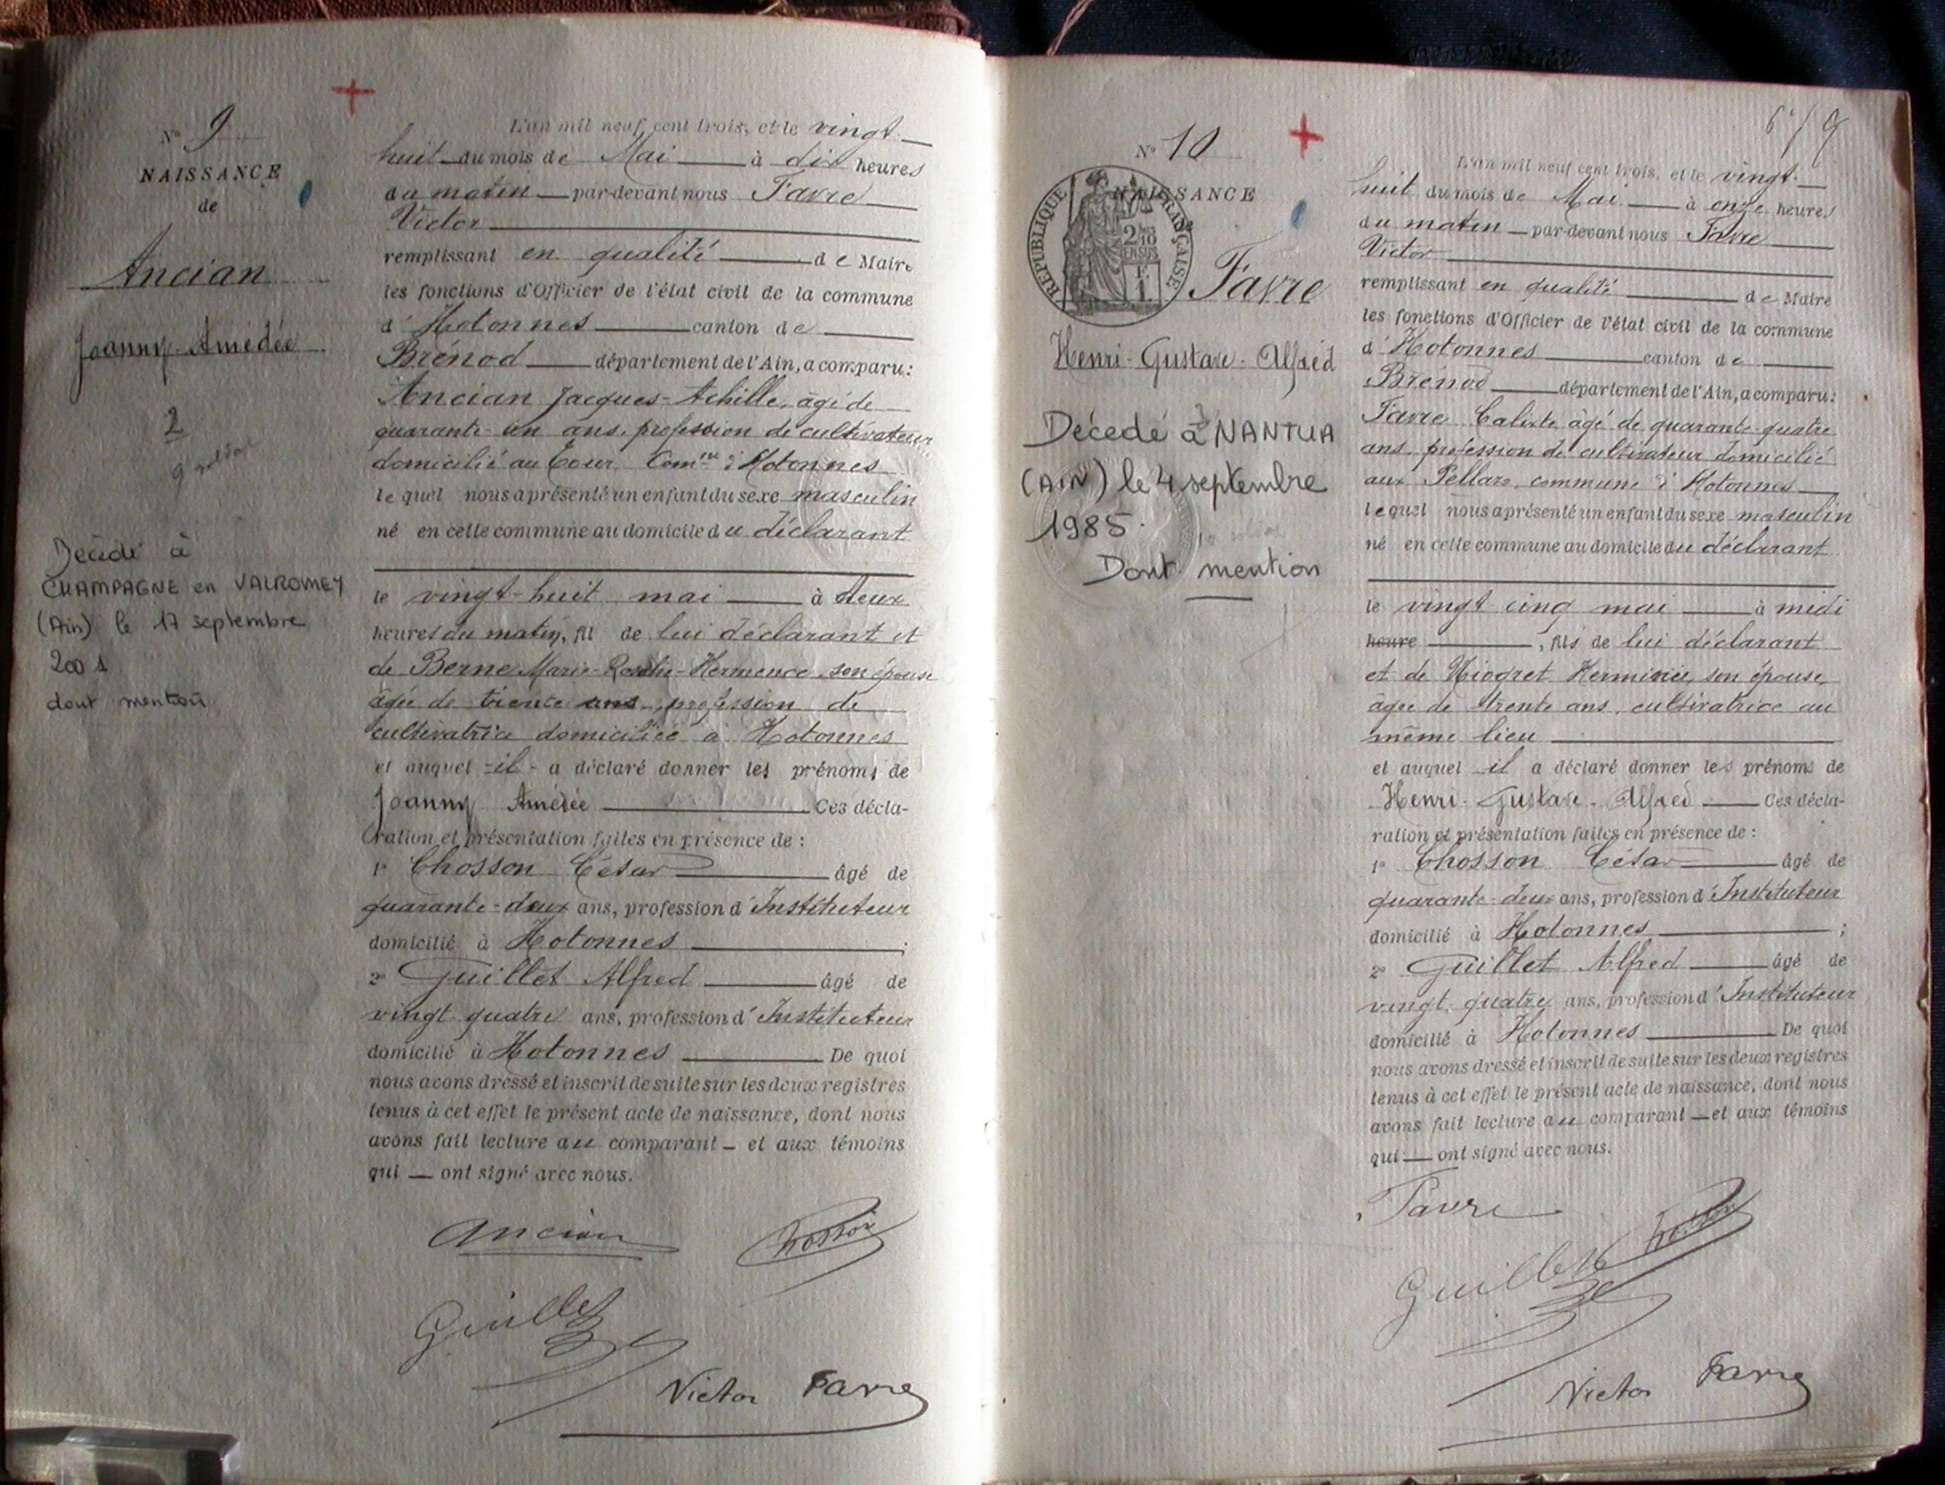 Nº 9
NAISSANCE
de
Ancian
Joanny-Amédée
2
Décédé à
CHAMPAGNE en VALROMEY
(Ain) le 17 septembre
2001
dont mention
L'an mil neuf cent trois, et le vingt
huit du mois de Mai à dix heures
du matin par-devant nous Favre
Victor
remplissant en qualité de Maire
les fonctions d'Officier de l'état civil de la commune
d'Hotonnes canton de
Brénod département de l'Ain, a comparu:
Ancian Jacques-Achille, âgé de
quarante-un ans, profession de cultivateur
domicilié au d'Hotonnes
lequel nous a présenté un enfant du sexe masculin
né en cette commune au domicile du déclarant
le vingt-huit mai à deux
heures du matin, fils de lui déclarant et
de Berne Marie- -Hermence son épouse
âgée de trente ans, profession de
cultivatrice domiciliée à Hotonnes
et auquel il a déclaré donner les prénoms de
Joanny Amédée Ces décla-
ration et présentation faites en présence de :
1º Chosson César âgé de
quarante-deux ans, profession d'Instituteur
domicilié à Hotonnes ;
2º Guillet Alfred âgé de
vingt quatre ans, profession d'Instituteur
domicilié à Hotonnes De quoi
nous avons dressé et inscrit de suite sur les deux registres
tenus à cet effet le présent acte de naissance, dont nous
avons fait lecture au comparant et aux témoins
qui ont signé avec nous.
Ancian Chosson
Guillet
Victor Favre
Nº 10
NAISSANCE
RÉPUBLIQUE FRANÇAISE
Favre
Henri-Gustave-Alfred
Décédé à NANTUA
(AIN) le 4 septembre
1985.
Dont mention
L'an mil neuf cent trois, et le vingt
huit du mois de Mai à onze heures
du matin par-devant nous Favre
Victor
remplissant en qualité de Maire
les fonctions d'Officier de l'état civil de la commune
d'Hotonnes canton de
Brénod département de l'Ain, a comparu:
Favre Calixte âgé de quarante-quatre
ans, profession de cultivateur domicilié
aux commune d'Hotonnes
lequel nous a présenté un enfant du sexe masculin
né en cette commune au domicile du déclarant
le vingt cinq mai à midi
heure , fils de lui déclarant
et de son épouse,
âgée de trente ans, cultivatrice au
même lieu
et auquel il a déclaré donner les prénoms de
Henri-Gustave-Alfred Ces décla-
ration et présentation faites en présence de :
1º Chosson César âgé de
quarante-deux ans, profession d'Instituteur
domicilié à Hotonnes ;
2º Guillet Alfred âgé de
vingt quatre ans, profession d'Instituteur
domicilié à Hotonnes De quoi
nous avons dressé et inscrit de suite sur les deux registres
tenus à cet effet le présent acte de naissance, dont nous
avons fait lecture au comparant et aux témoins
qui ont signé avec nous.
Favre Chosson
Guillet
Victor Favre